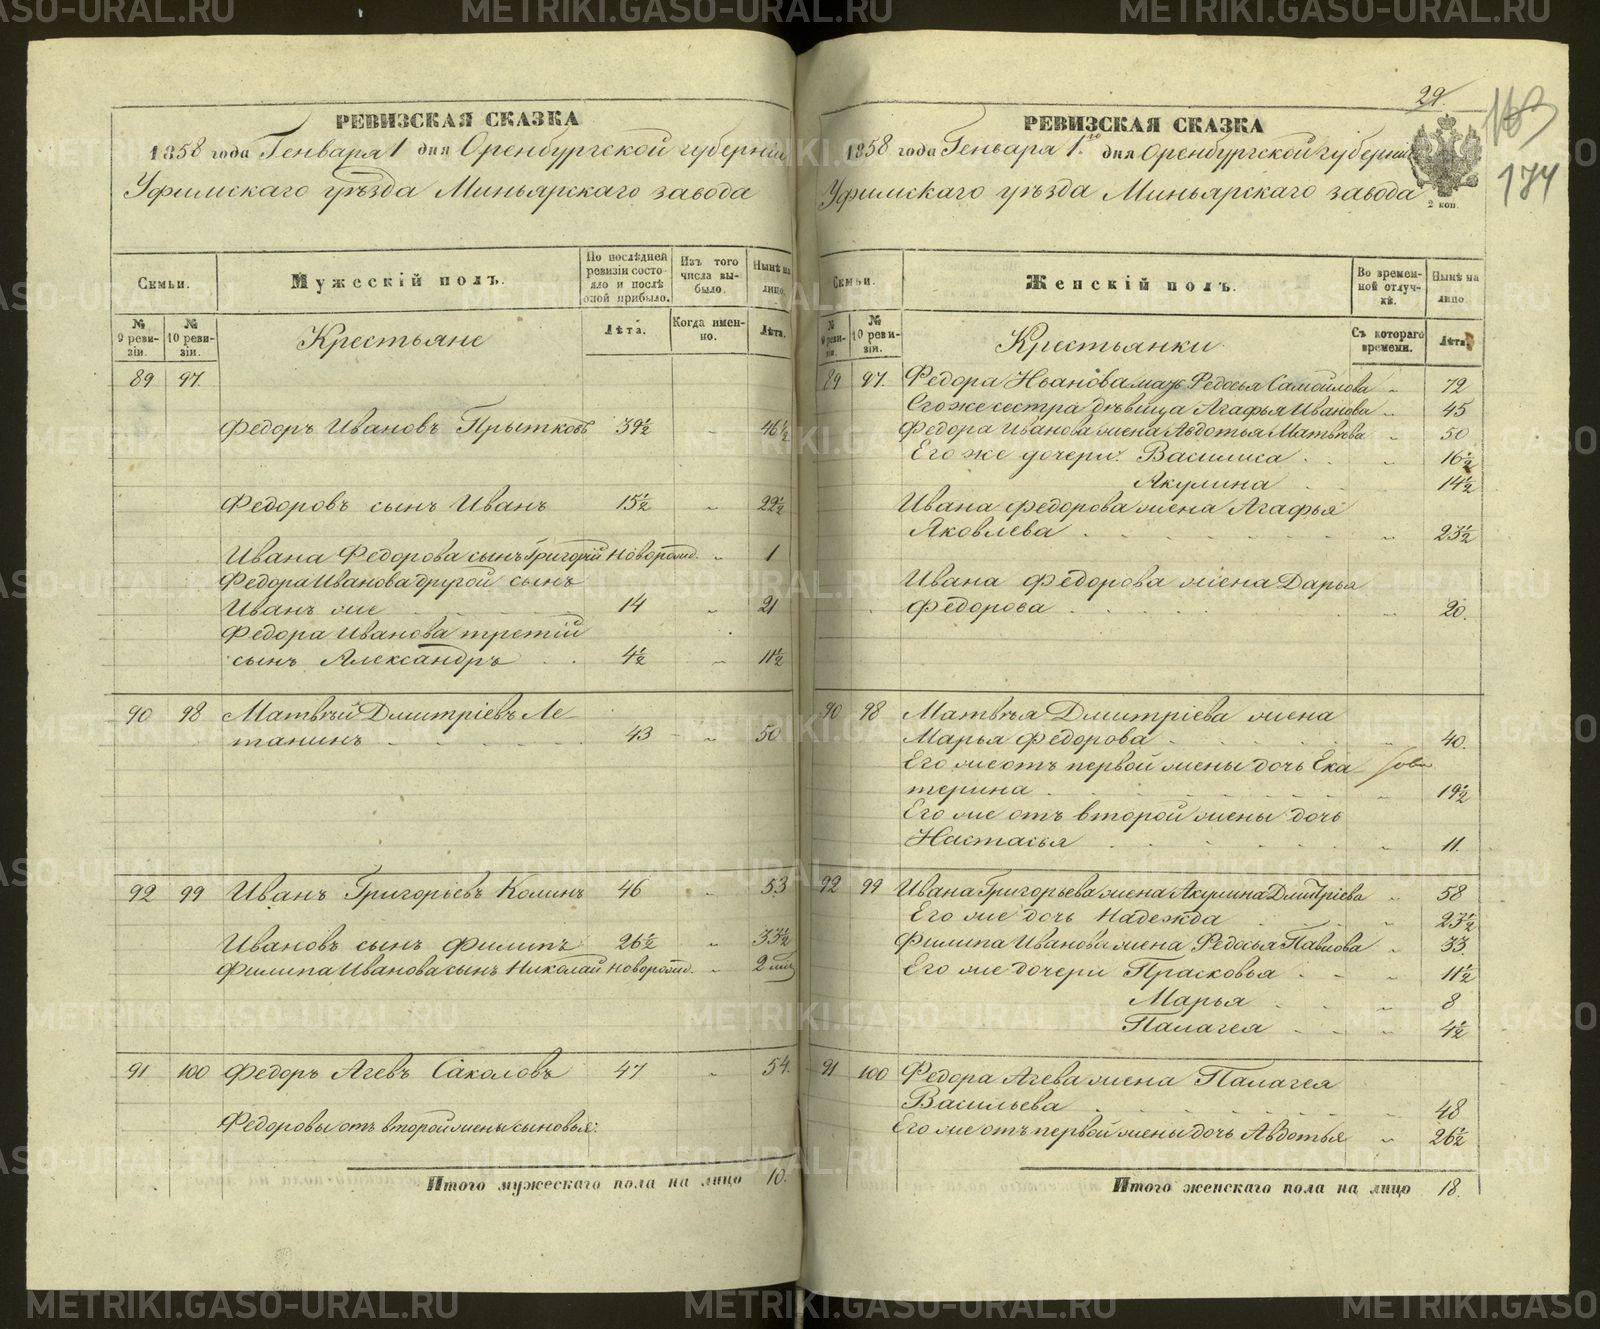 РЕВИЗСКАЯ СКАЗКА
1858 года Генваря 1 дня Оренбургской губерніи
Уфимскаго уѣзда Миньярскаго завода
Семьи.
Мужескій полъ.
По послѣдней ревизіи состояло и послѣ оной прибыло.
Изъ того числа выбыло.
Нынѣ на лицо.
№ 9 ревизіи.
№ 10 ревизіи.
Крестьяне
Лѣта.
Когда именно.
Лѣта.
89 97.
Федоръ Ивановъ Прытковъ 39½ „ 46½
Федоровъ сынъ Иванъ 15½ „ 22½
Ивана Федорова сынъ Григорій новорожд. „ 1
Федора Иванова другой сынъ
Иванъ же 14 „ 21
Федора Иванова третій
сынъ Александръ 4½ „ 11½
90 98 Матвѣй Дмитріевъ Ле-
танинъ 43 „ 50
92 99 Иванъ Григорьевъ Коминъ 46 „ 53
Ивановъ сынъ Филипъ 26½ „ 33½
Филипа Иванова сынъ Николай новорожд. „ 2 мѣс
91 100 Федоръ Агевъ Саколовъ 47 „ 54.
Федоровы отъ второй жены сыновья:
Итого мужескаго пола на лицо 10.
29.
163
174
РЕВИЗСКАЯ СКАЗКА
1858 года Генваря 1го дня Оренбургской губерніи
Уфимскаго уѣзда Миньярскаго завода
2 коп.
Семьи.
Женскій полъ.
Во временной отлучкѣ.
Нынѣ на лицо
№ 9 ревизіи.
№ 10 ревизіи.
Крестьянки
Съ котораго времени.
Лѣта.
89 97. Федора Иванова мать Федосья Самойлова „ 72
Его же сестра дѣвица Агафья Иванова „ 45
Федора Иванова жена Авдотья Матвѣева „ 50
Его же дочери: Василиса „ 16½
Акулина 14½
Ивана Федорова жена Агафья
Яковлева 23½
Ивана Федорова жена Дарья
Федорова „ 20.
90 98 Матвѣя Дмитріева жена
Марья Федорова „ 40.
Его же отъ первой жены дочь Ека
терина „ 19½
Его же отъ второй жены дочь
Настасья „ 11.
92 99 Ивана Григорьева жена Акулина Дмитріева „ 58
Его же дочь Надежда „ 23½
Филипа Иванова жена Федосья Павлова „ 33.
Его же дочери Прасковья „ 11½
Марья „ 8
Палагея „ 4½
91 100 Федора Агева жена Палагея
Васильева „ 48
Его же отъ первой жены дочь Авдотья „ 26½
Итого женскаго пола на лицо 18.
METRIKI.GASO-URAL.RU